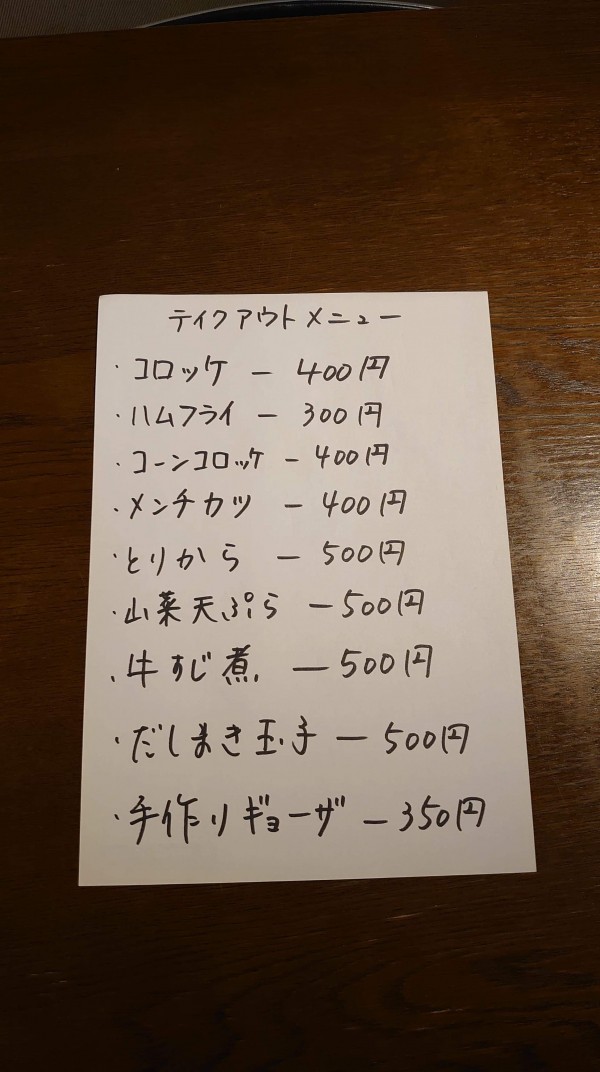 テイクアウトメニュー
・コロッケ － 400円
・ハムフライ － 300円
・コーンコロッケ － 400円
・メンチカツ － 400円
・とりから － 500円
・山菜天ぷら － 500円
・牛すじ煮 － 500円
・だしまき玉子 － 500円
・手作りギョーザ － 350円